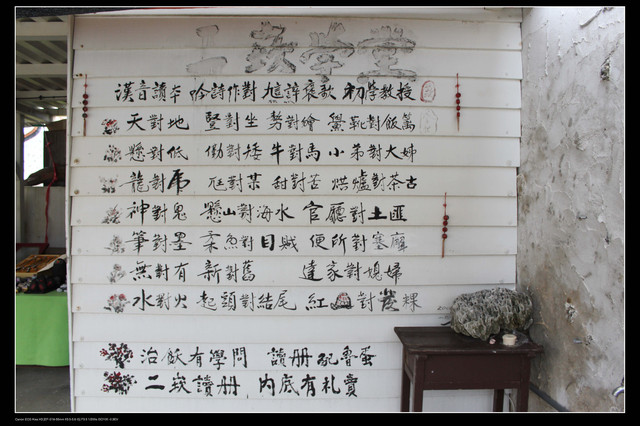 二崁學堂
漢音讀本 吟詩作對 褒歌 初學教授
天對地 豎對坐 對 靴對飯萬
懸對低 對矮 牛對馬 小弟對大姊
龍對虎 尪對某 甜對苦 烘爐對茶古
神對鬼 懸山對海水 官廳對土匪
筆對墨 柔魚對目賊 便所對塞
無對有 新對舊 達家對媳婦
水對火 起頭對結尾 紅 對發粿
治 有學問 讀冊
二崁讀冊 內底有札賣